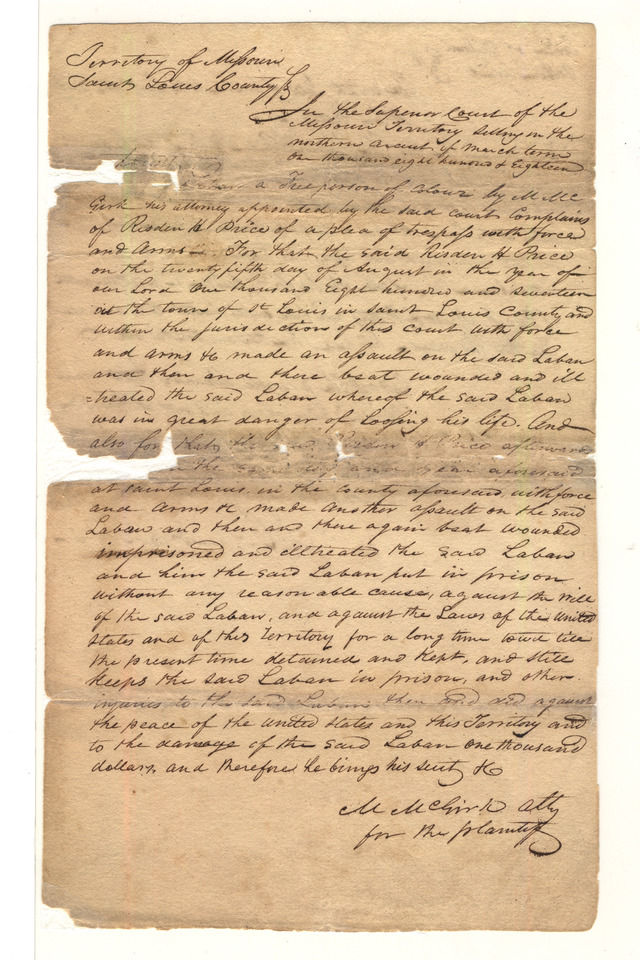 Territory of Missouri
Saint Louis County Ss
In the Superior Court of the
Missouri Territory sitting in the
northern circuit of March term
one thousand eight hundred & Eighteen
Laban a Free person of colour by M Mc
Girk his attorney appointed by the said court Complains
of Risden H Price of a plea of trespass with force
and Arms. For that the said Risden H Price
on the twenty fifth day of August in the year of
our Lord One thousand Eight hundred and seventeen
at the town of St Louis in Saint Louis County and
within the jurisdiction of this court with force
and arms &c made an assault on the said Laban
and then and there beat wounded and ill
=treated the said Laban whereof the said Laban
was in great danger of Loosing his life. And
also for that the said Risden H Price afterwards
in the same day and year aforesaid
at Saint Louis in the county aforesaid with force
and Arms &c made another assault on the said
Laban and then and there again beat wounded
imprisoned and illtreated the said Laban
and him the said Laban put in prison
without any reasonable cause, against the will
of the said Laban, and against the Laws of the United
States and of this Territory for a long time towit till
the present time detained and kept, and still
keeps the said Laban in prison, and other
injuries to the said Laban then and did against
the peace of the United States and this Territory and
to the damage of the said Laban one thousand
dollars, and therefore he brings his suit &c
M McGirk atty
for the plaintiff